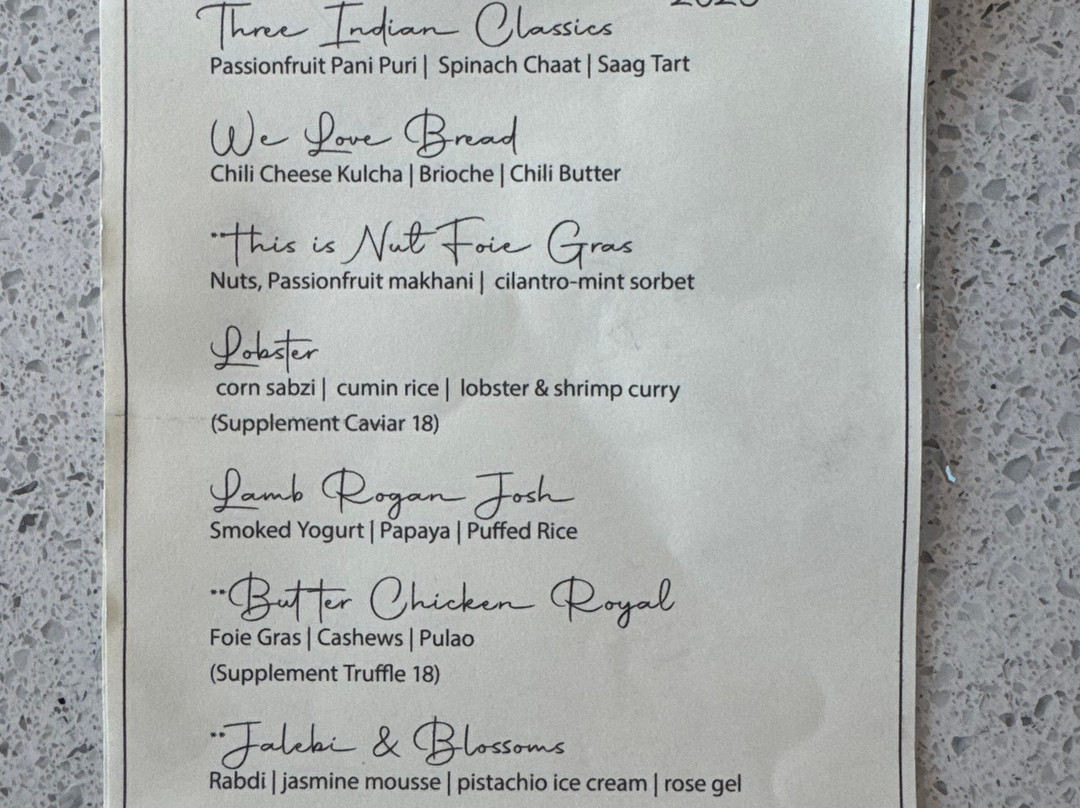 Three Indian Classics
Passionfruit Pani Puri | Spinach Chaat | Saag Tart
We Love Bread
Chili Cheese Kulcha | Brioche | Chili Butter
**This is Nut Foie Gras
Nuts, Passionfruit makhani | cilantro-mint sorbet
Lobster
corn sabzi | cumin rice | lobster & shrimp curry
(Supplement Caviar 18)
Lamb Rogan Josh
Smoked Yogurt | Papaya | Puffed Rice
**Butter Chicken Royal
Foie Gras | Cashews | Pulao
(Supplement Truffle 18)
**Jalebi & Blossoms
Rabdi | jasmine mousse | pistachio ice cream | rose gel